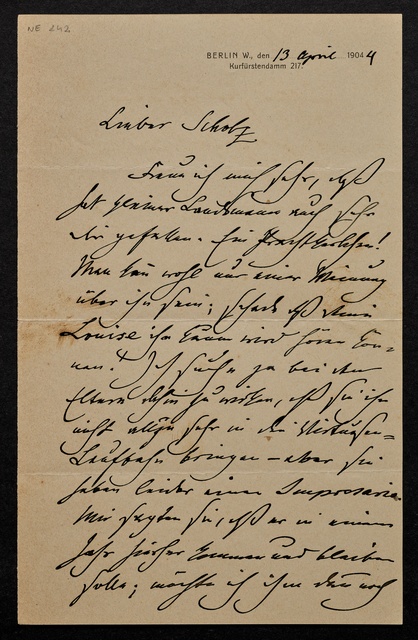 NE 242
BERLIN W., den 13 April 1904
Kurfürstendamm 217.
Lieber Scholz
Freue ich mich sehr, daß
kleiner Landsmann auch sehr
dir gefallen. Ein Prachtkerlchen!
Man kann wohl nur einer Meinung
über ihn sein; schade daß deine
Louise ihn kaum wird hören kön-
nen! Ich suche ja bei den
Eltern dahin zu wirken, daß sie ihn
nicht allzu sehr in die Virtuosen-
Laufbahn bringen – aber sie
haben leider einen Impressario.
Mir sagten sie, daß er in einem
Jahr hierher kommen und bleiben
solle; möchte ich ihm dann noch